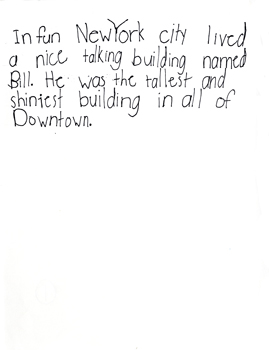 In fun NewYork city lived
a nice talking building named
Bill. He was the tallest and
shiniest building in all of
Downtown.